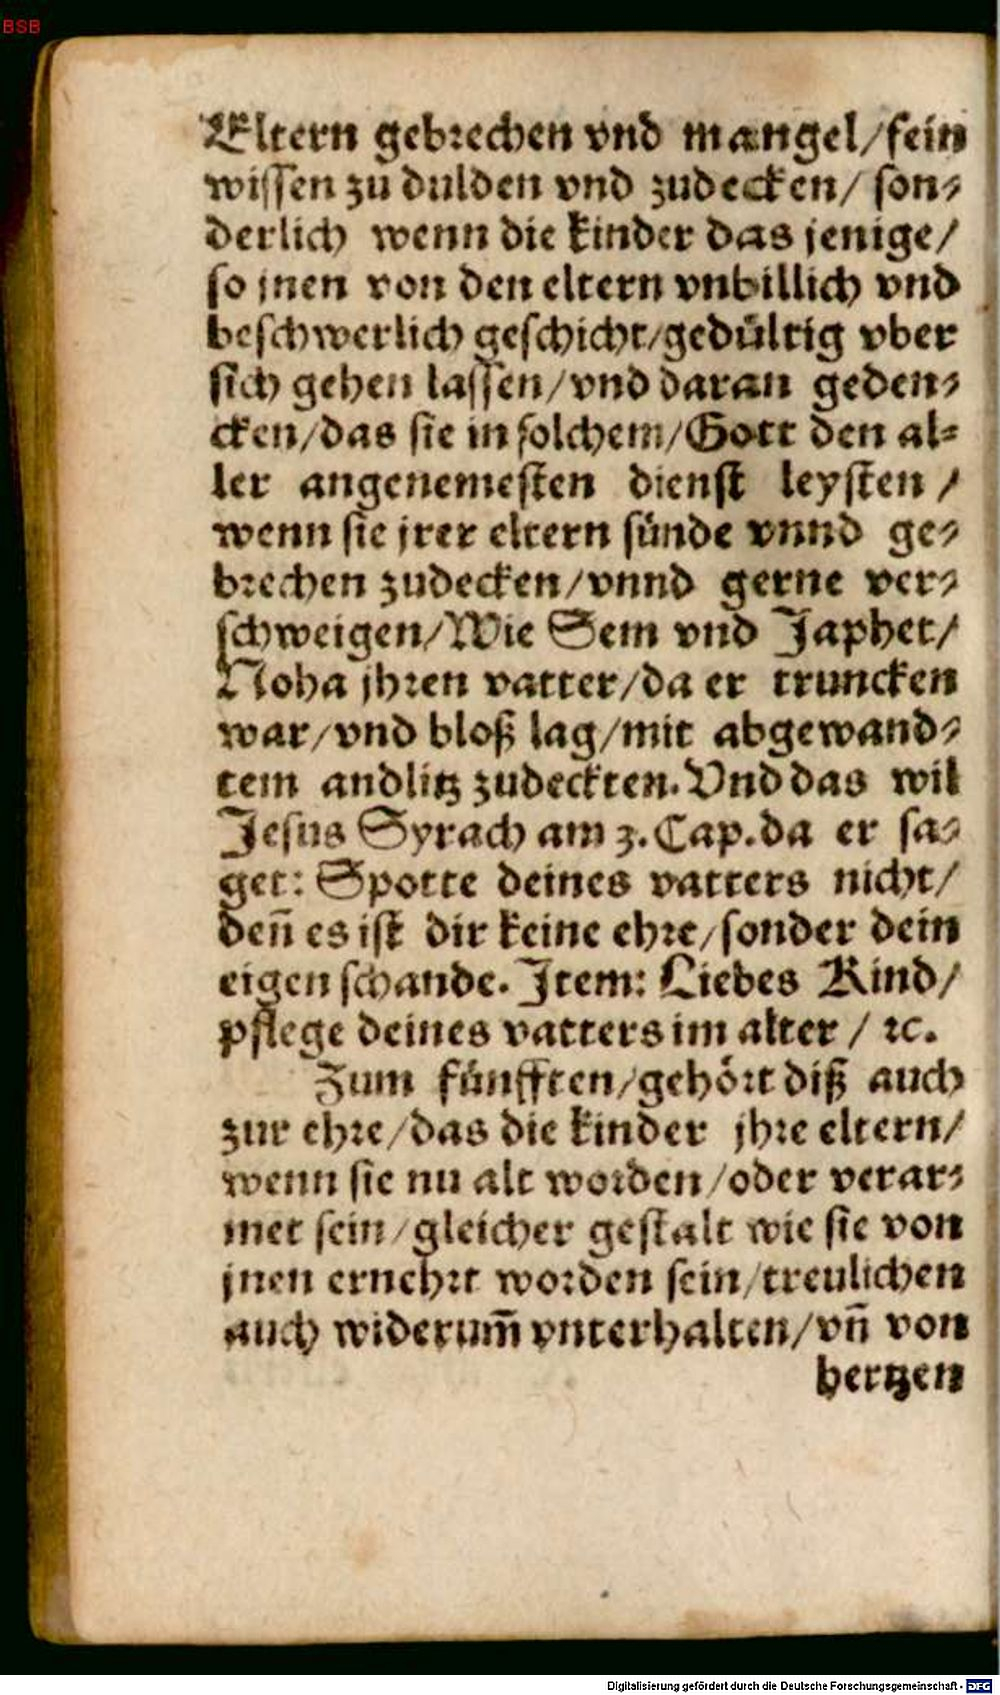 BSB
Eltern gebrechen vnd mangel/fein
wissen zu dulden vnd zudecken/ son⸗
derlich wenn die kinder das jenige/
so jnen von den eltern vnbillich vnd
beschwerlich geschicht/gedültig vber
sich gehen lassen/vnd daran geden⸗
cken/das sie in solchem/Gott den al⸗
ler angenemesten dienst leysten /
wenn sie jrer eltern sünde vnnd ge⸗
brechen zudecken/vnnd gerne ver⸗
schweigen/Wie Sem vnd Japhet/
Noha jhren vatter/da er truncken
war/vnd bloß lag/mit abgewand⸗
tem andlitz zudeckten. Vnd das wil
Jesus Syrach am 3. Cap. da er sa⸗
get: Spotte deines vatters nicht/
deñ es ist dir keine ehre/sonder dein
eigen schande. Item: Liebes Kind/
pflege deines vatters im alter / ꝛc.
Zum fünfften/gehört diß auch
zur ehre/das die kinder jhre eltern/
wenn sie nu alt worden/oder verar⸗
met sein/gleicher gestalt wie sie von
jnen ernehrt worden sein/treulichen
auch widerum̃ vnterhalten/vñ von
hertzen
Digitalisierung gefördert durch die Deutsche Forschungsgemeinschaft - DFG